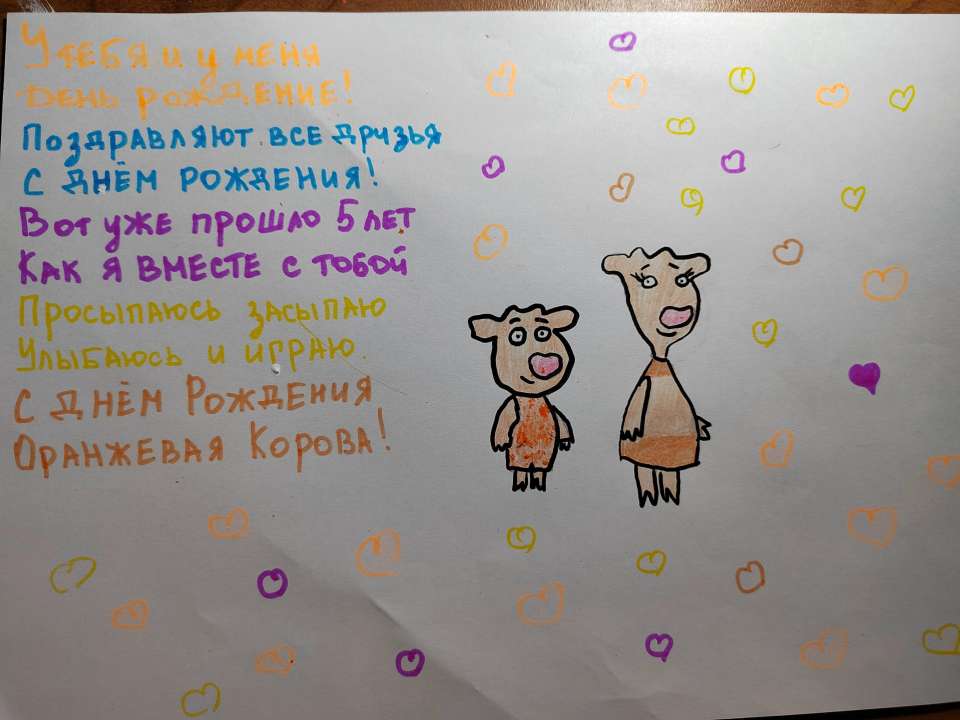 У тебя и у меня
День рождение!
Поздравляют все друзья
С днём рождения!
Вот уже прошло 5 лет
Как я вместе с тобой
Просыпаюсь засыпаю
Улыбаюсь и играю.
С днём Рождения
Оранжевая Корова!